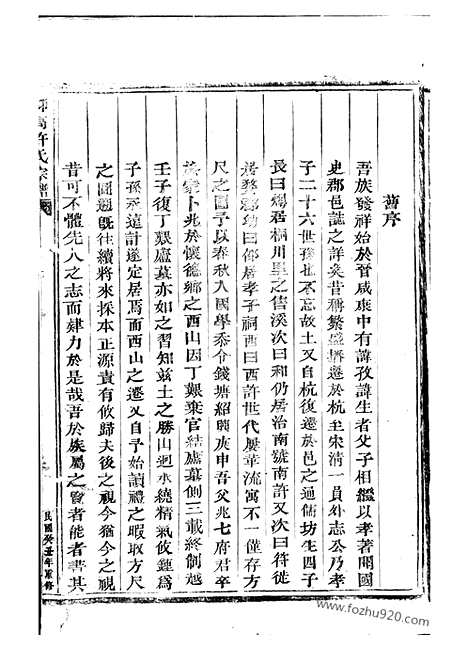 舊序
吾族發祥始於晉咸康中有諱孜諱生者父子相繼以孝著聞國
史郡邑誌之詳矣昔稱繁盛擠遷於杭至宋清一員外志公乃孝
子二十六世孫也不忘故土又自杭復遷於邑之通儒坊生四子
長曰 居桐川里之售溪次曰和仍居治南號南許又次曰符徙
居婺 幼曰仰居孝子祠西曰西許世代屢革流寓不一僅存方
尺之圖予以春秋入國學忝令錢塘紹興庚申吾父兆七府君卒
於 卜兆於懷德鄉之西山因丁艱棄官結廬墓側三載終制越
壬子復丁艱廬墓亦如之習知玆土之勝山迴水繞精氣攸鍾爲
子孫永遠計遂定居焉而西山之遷又自予始讀禮之暇取方尺
之圖 旣往續將來探本正源責有攸歸夫後之視今猶今之視
昔可不體先人之志而肄力於是哉吾於族屬之賢者能者書其
許氏宗譜
民國癸丑年重修
www.fozhu920.com